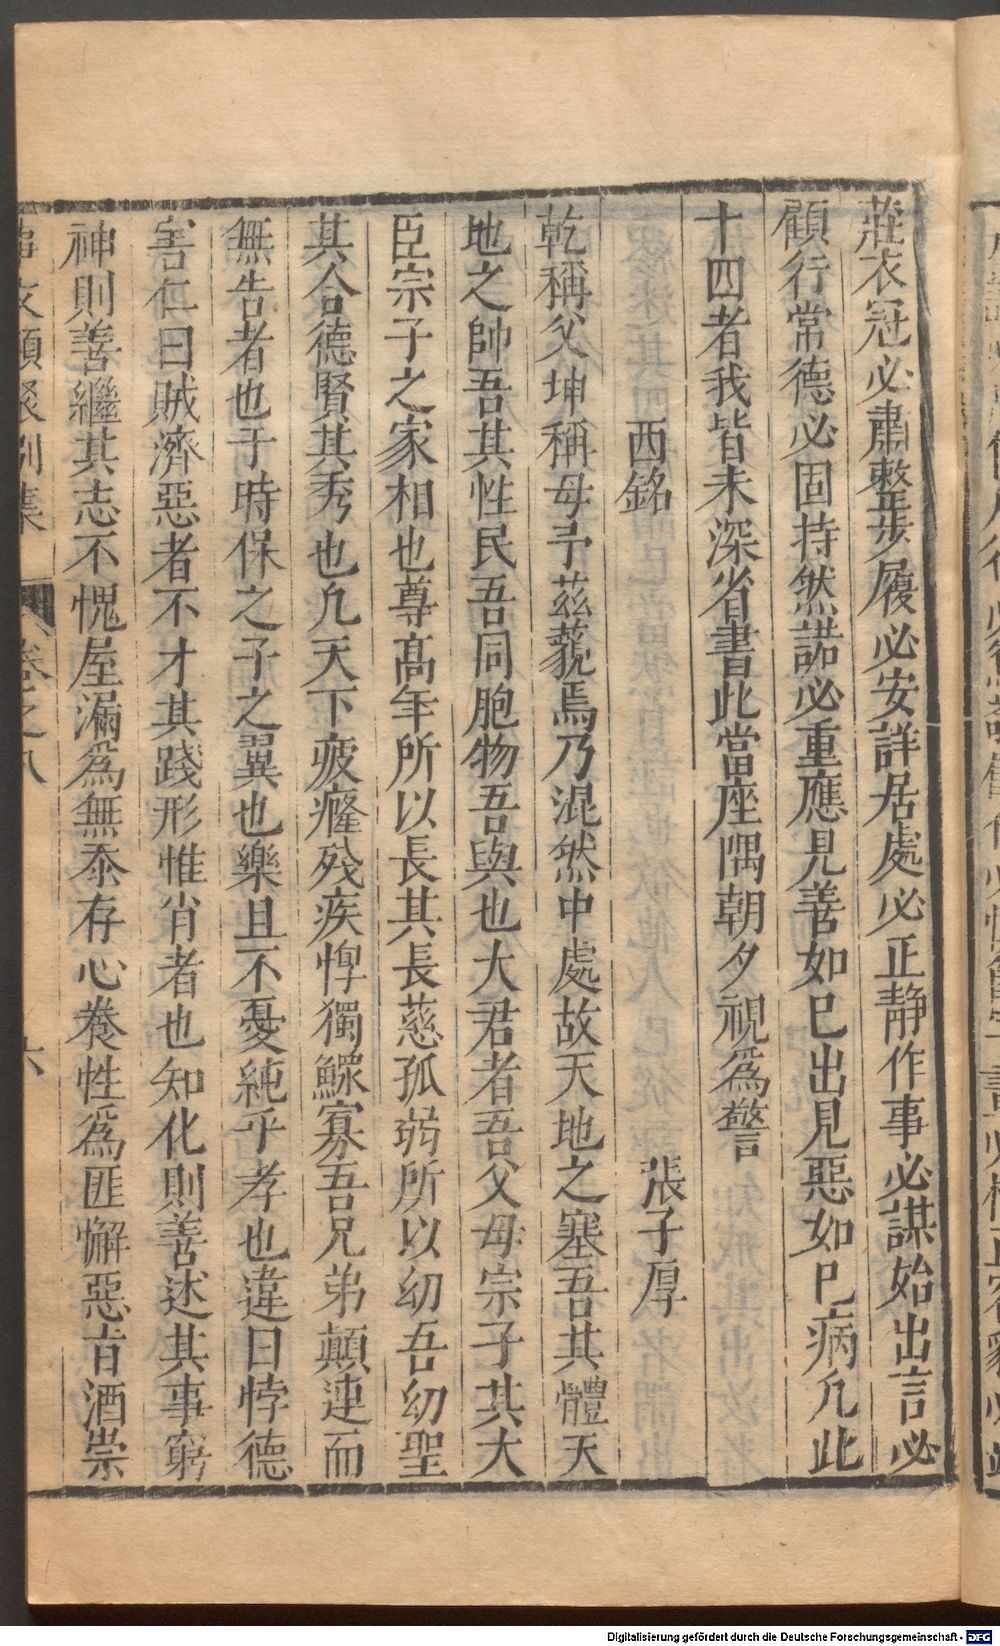 莊衣冠必肅整步履必安詳居處必正靜作事必謀始出言必
顧行常德必固持然諾必重應見善如巳出見惡如巳病凢此
十四者我皆未深省書此當座隅朝夕視爲警
西銘 張子厚
乾稱父坤稱母予茲藐焉乃混然中處故天地之塞吾其體天
地之帥吾其性民吾同胞物吾與也大君者吾父母宗子其大
臣宗子之家相也尊高年所以長其長慈孤弱所以幼吾幼聖
其合德賢其秀也凢天下疲癃殘疾惸獨鰥寡吾兄弟顛連而
無告者也于時保之子之翼也樂且不憂純乎孝也違曰悖德
害仁曰賊濟惡者不才其踐形惟肖者也知化則善述其事窮
神則善繼其志不愧屋漏爲無忝存心養性爲匪懈惡旨酒崇
事文類聚別集 卷之八 六
Digitalisierung gefördert durch die Deutsche Forschungsgemeinschaft - DFG